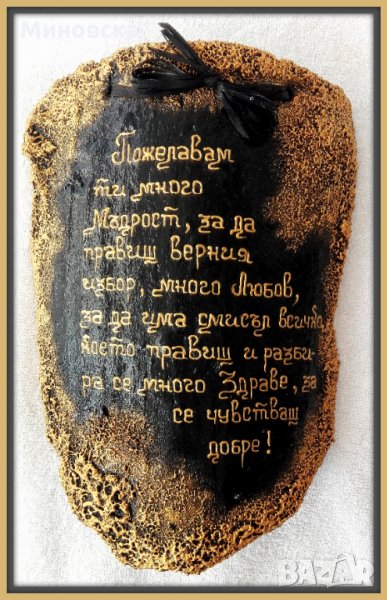 Миновска
Пожелавам
ти много
Мъдрост, за да
правиш верния
избор, много Любов,
за да има смисъл всичко,
което правиш и разби-
ра се много Здраве, за
се чувстваш
добре!
BAZAR